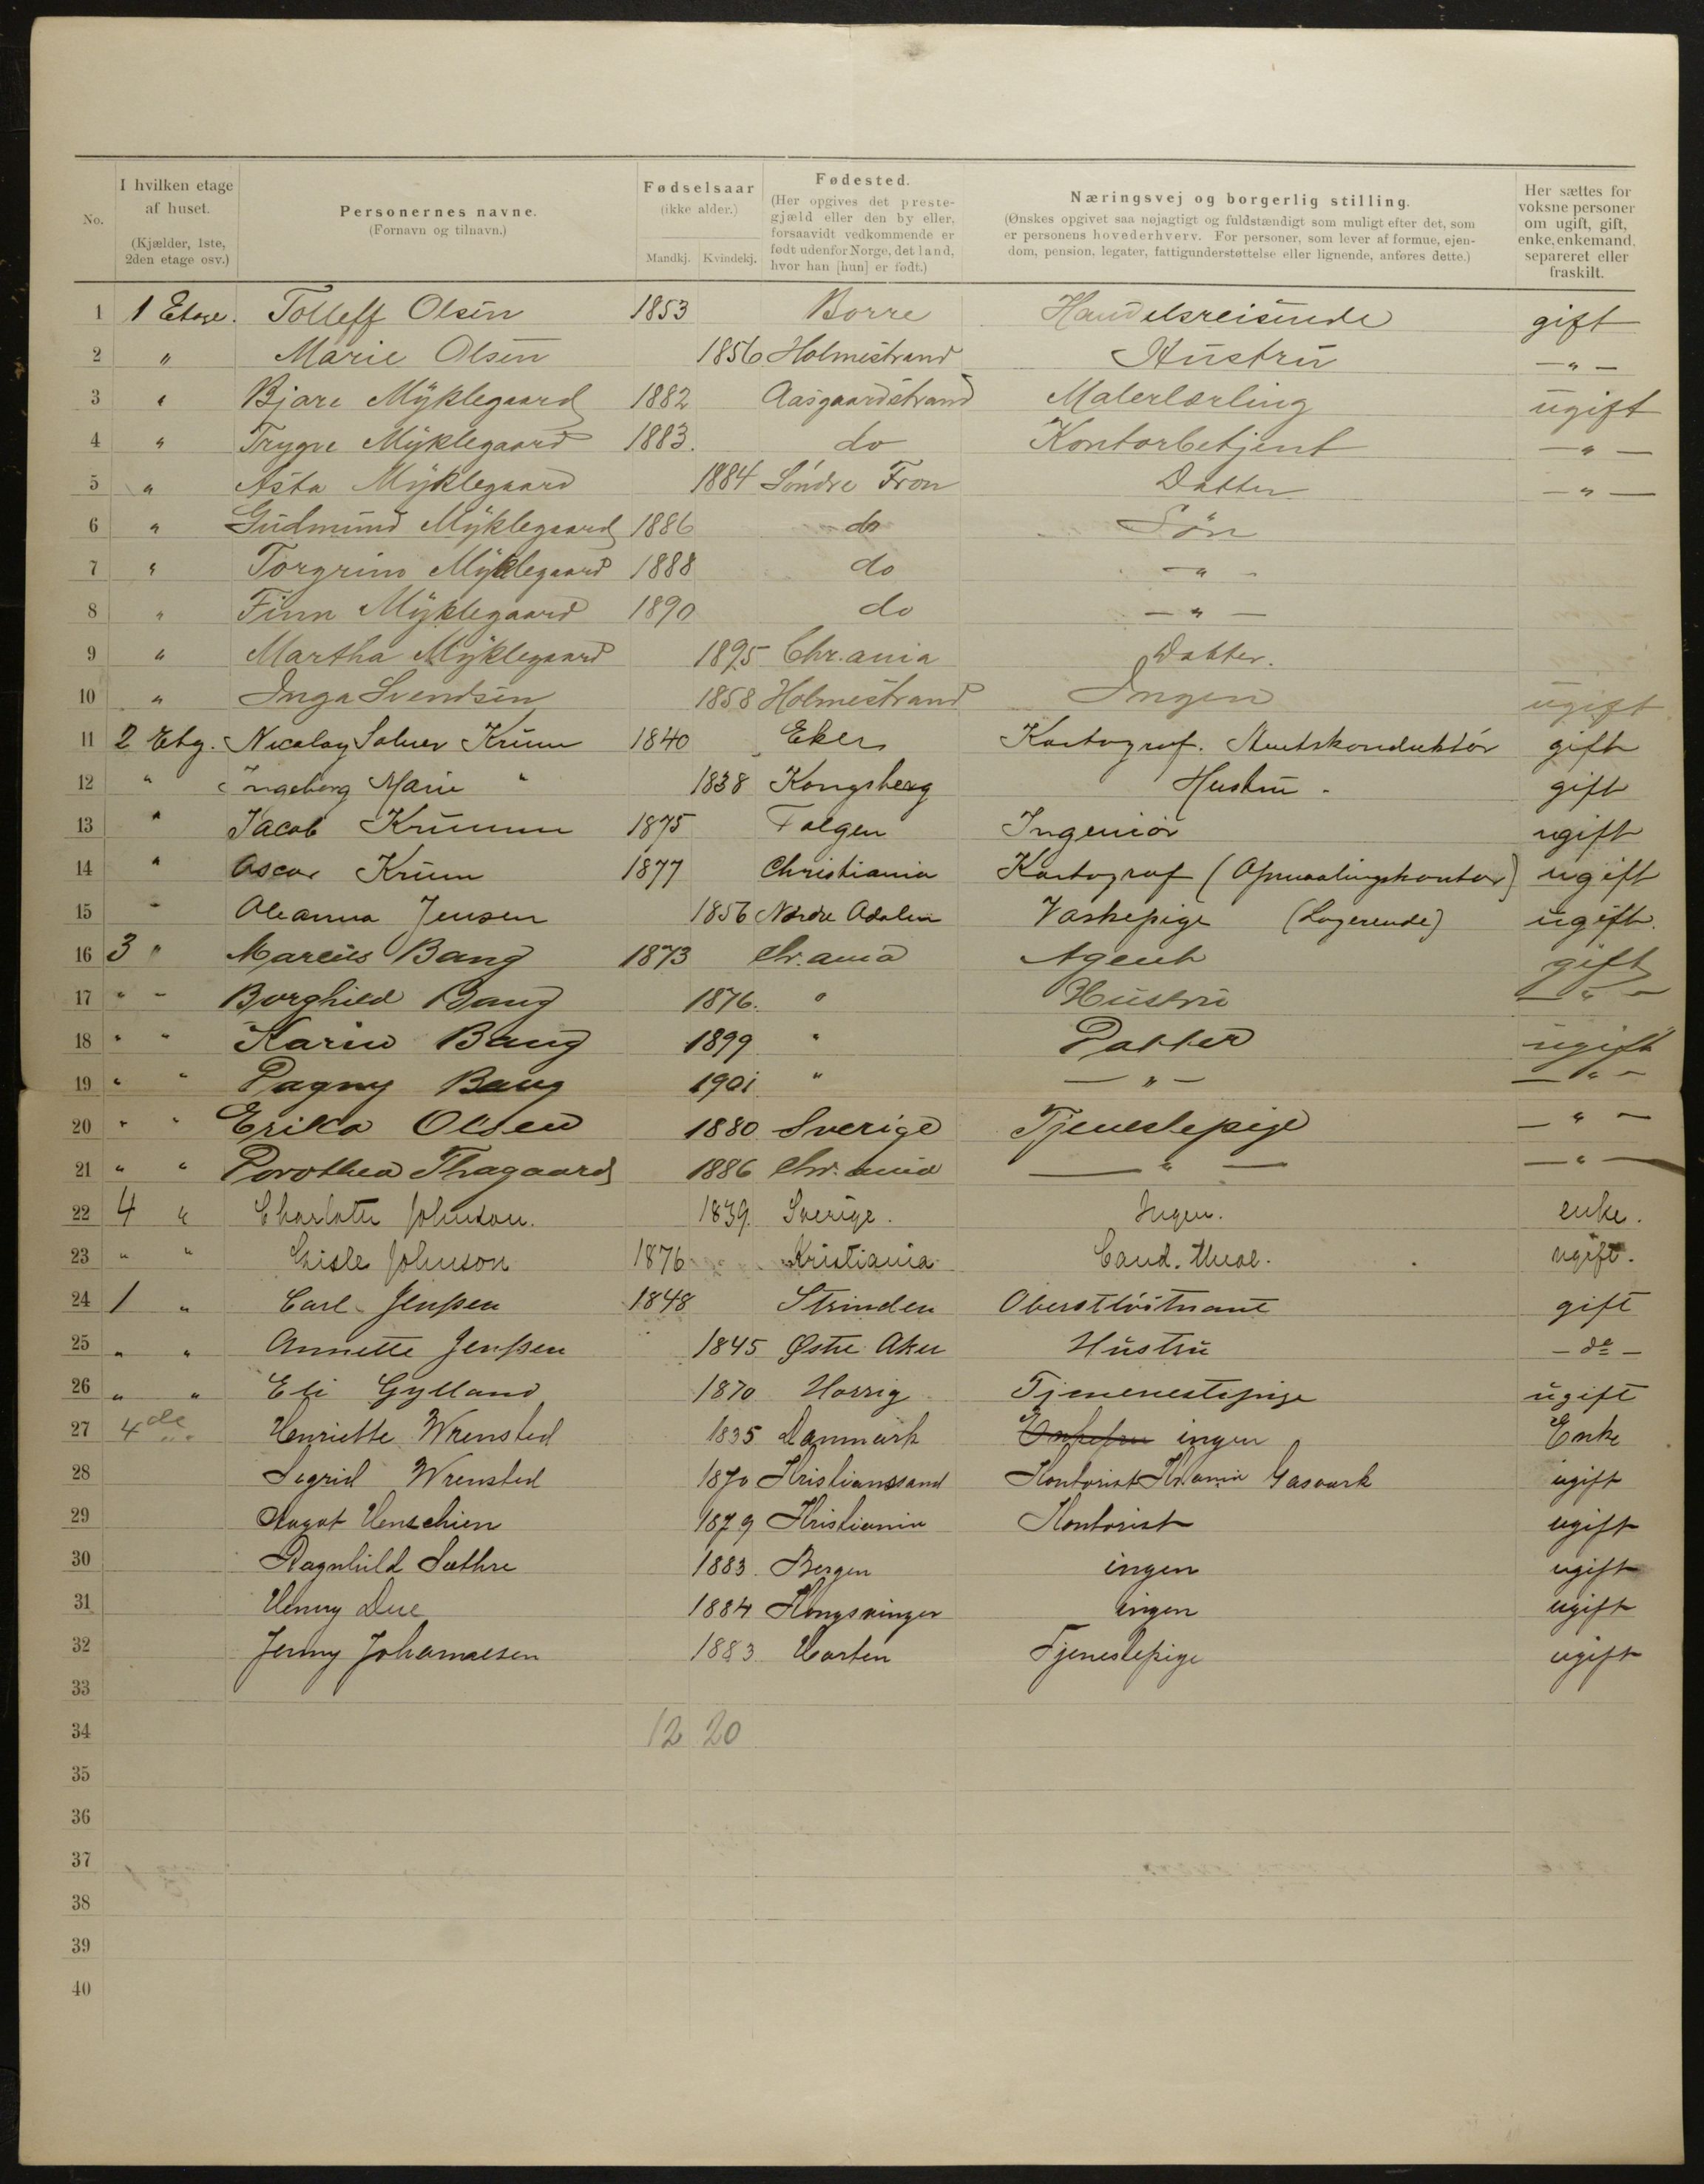 No.
I hvilken etage af huset. (Kjælder, 1ste, 2den etage osv.)
Personernes navne. (Fornavn og tilnavn.)
Fødselsaar (ikke alder.) Mandkj. Kvindekj.
Fødested. (Her opgives det prestegjæld eller den by eller, forsaavidt vedkommende er født udenfor Norge, det land, hvor han [hun] er født.)
Næringsvej og borgerlig stilling. (Ønskes opgivet saa nøjagtigt og fuldstændigt som muligt efter det, som er personens hovederhverv. For personer, som lever af formue, ejendom, pension, legater, fattigunderstøttelse eller lignende, anføres dette.)
Her sættes for voksne personer om ugift, gift, enke, enkemand, separeret eller fraskilt.
1 1 Etage. Tolleff Olsen 1853 Borre Handelsreisende gift
2 " Marie Olsen 1856 Holmestrand Hustru — " —
3 " Bjare Myklegaard 1882 Aasgaardstrand Malerlærling ugift
4 " Trygve Myklegaard 1883. do Kontorbetjent — " —
5 " Asta Myklegaard 1884 Søndre Fron Datter — " —
6 " Gudmund Myklegaard 1886 do Søn
7 " Torgrim Myklegaard 1888 do — " —
8 " Finn Myklegaard 1890 do — " —
9 " Martha Myklegaard 1895 Chr.ania Datter.
10 " Inga Svendsen 1858 Holmestrand Ingen ugift
11 2 Etg. Nicolay Krum 1840 Eker Kartograf. Amtskonduktør gift
12 " Ingeborg Marie " 1838 Kongsberg Hustru. gift
13 " Jacob Krumm 1875 Ingeniør ugift
14 " Oscar Krum 1877 Christiania Kartograf (Opmaalingskontor) ugift
15 " Oleanna Jensen 1856 Nordre Adalen Vaskepige (Logerende) ugift.
16 3 " Marcus Bang 1873 Chr.ania Agent gift
17 " " Borghild Bang 1876. " Hustru — " —
18 " " Karin Bang 1899 " Datter ugift
19 " " Dagny Bang 1901 " — " — — " —
20 " " Erika Olsen 1880 Sverige Tjenestepige — " —
21 " " Dorothea Thagaard 1886 Chr.ania — " — — " —
22 4 " Charlotte Johnson. 1839. Sverige. Ingen. enke.
23 " " Gisle Johnson 1876 Kristiania Cand. theol. ugift.
24 1 " Carl Jenssen 1848 Strinden Oberstløitnant gift
25 " " Annette Jenssen 1845 Østre Aker Hustru — do —
26 " " Eli Gylland 1870 Tjenenestepige ugift
27 4de " " Henriette Wrensted 1835 Danmark ingen Enke
28 Sigrid Wrensted 1870 Kristianssand Kontorist Kr.ania Gasværk ugift
29 Aagot Henschien 1879 Kristiania Kontorist ugift
30 Ragnhild Sæthre 1883. Bergen ingen ugift
31 Henny Due 1884 Kongsvinger ingen ugift
32 Jenny Johannesen 1883. Horten Tjenestepige ugift
33
34 12 20
35
36
37
38
39
40